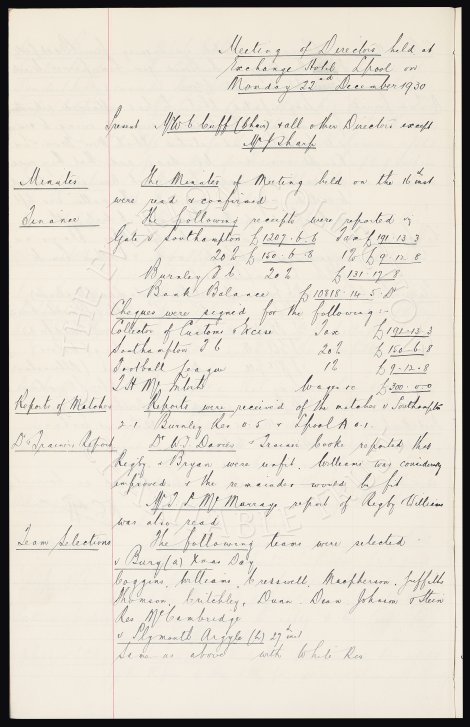 Meeting of Directors held at
Exchange Hotel Lpool on
Monday 22nd December 1930
Present Mr W C Cuff (Chair) & all other Directors except
Mr J Sharp
Minutes The Minutes of Meeting held on the 16th inst
were read & confirmed
Finance The following receipts were reported
Gate v Southampton £1207.6.6 Tax £191.13.3
20% £160.6.8 1% £9.12.8
Burnley F C 20% £131.17.8
Bank Balance £10818.14.5 Dr
Cheques were signed for the following :-
Collector of Customs & Excise Tax £191-13-3
Southampton F C 20% £160-6-8
Football League 1% £9-12-8
T H McIntosh Wages &c £200-0-0
Reports of Matches Reports were received of the matches v Southampton
2-1. Burnley Res 0.5 & Lpool A 0.1.
Dr & Trainers Report Dr W T Davies & Trainer Cooke reported that
Rigby & Bryan were unfit. Williams was considerably
improved & the remainder would be fit
Mr T P McMurrays report of Rigby & Williams
was also read
Team Selections The following teams were selected
v Bury (a) Xmas Day
Coggins, Williams, Cresswell, Macpherson, Griffiths
Thomson, Critchley, Dunn. Dean, Johnson & Stein
Res McCambridge
v Plymouth Argyle (h) 27th inst
Same as above with White Res